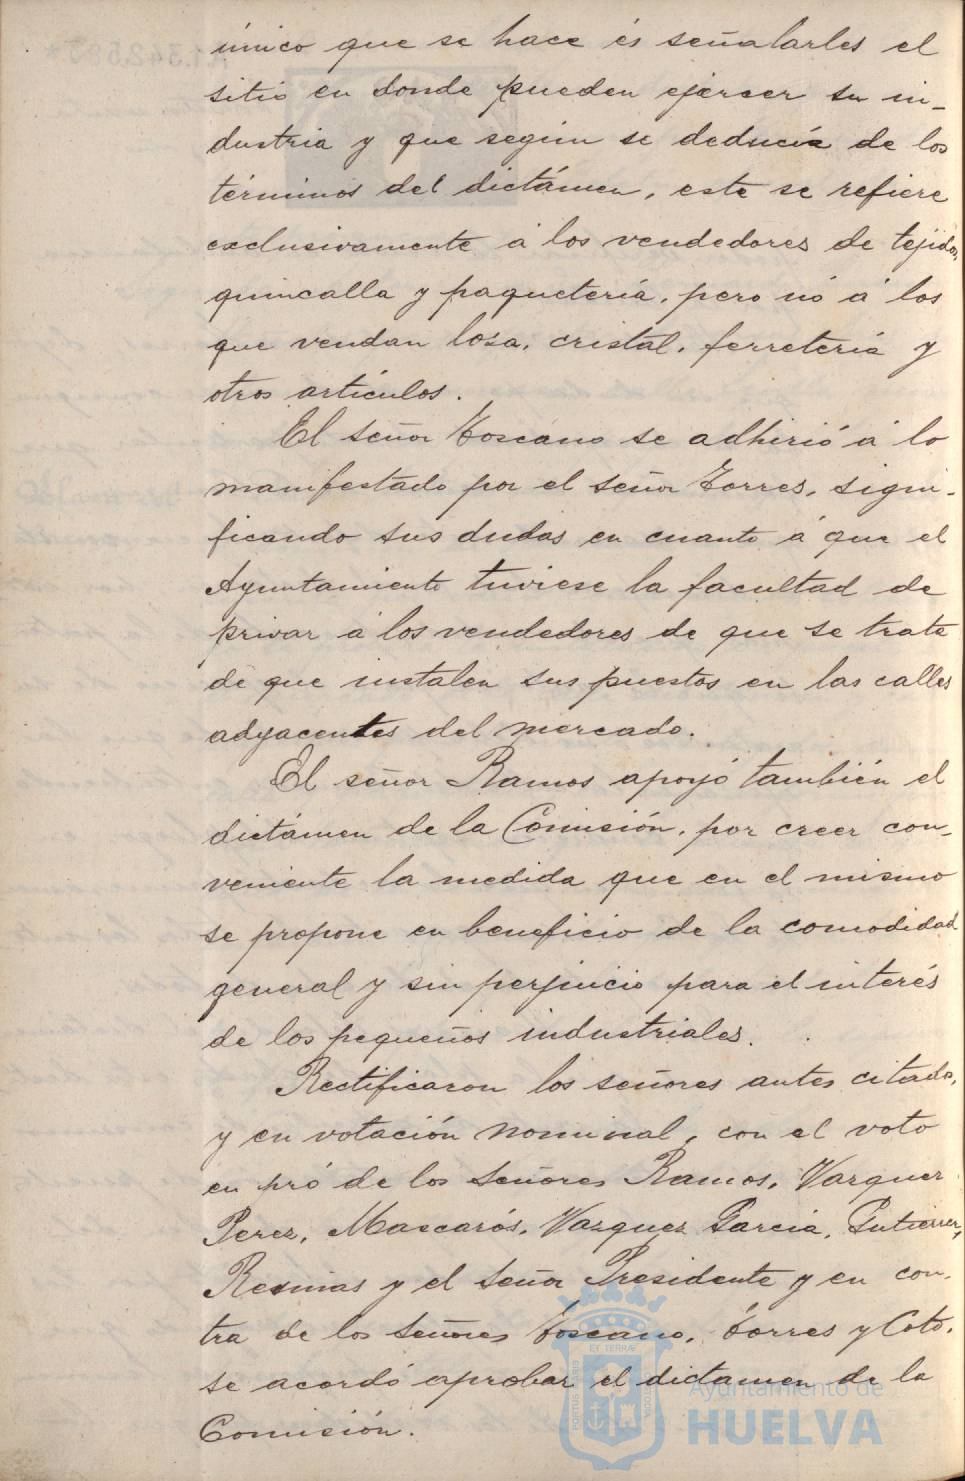 único que se hace és señalarles el
sitio en donde pueden ejercer su in-
dustria y que según se deducía de los
términos del dictámen, este se refiere
exclusivamente á los vendedores de tejidos,
quincalla y paquetería, pero nó á los
que vendan loza, cristal, ferretería y
otros artículos.
El señor Toscano se adhirió á lo
manifestado por el señor Torres, signi-
ficando sus dudas en cuanto á que el
Ayuntamiento tuviese la facultad de
privar á los vendedores de que se trata
de que instalen sus puestos en las calles
adyacentes del mercado.
El señor Ramos apoyó también el
dictámen de la Comisión, por creer con-
veniente la medida que en el mismo
se propone en beneficio de la comodidad
general y sin perjuicio para el interés
de los pequeños industriales.
Rectificaron los señores antes citados,
y en votación nominal, con el voto
en pró de los señores Ramos, Vazquez
Perez, Mascarós, Vazquez Garcia, Gutierrez,
y el señor Presidente y en con-
tra de los señores Toscano, Torres y Coto,
se acordó aprobar el dictamen de la
Comisión.
Ayuntamiento de
HUELVA